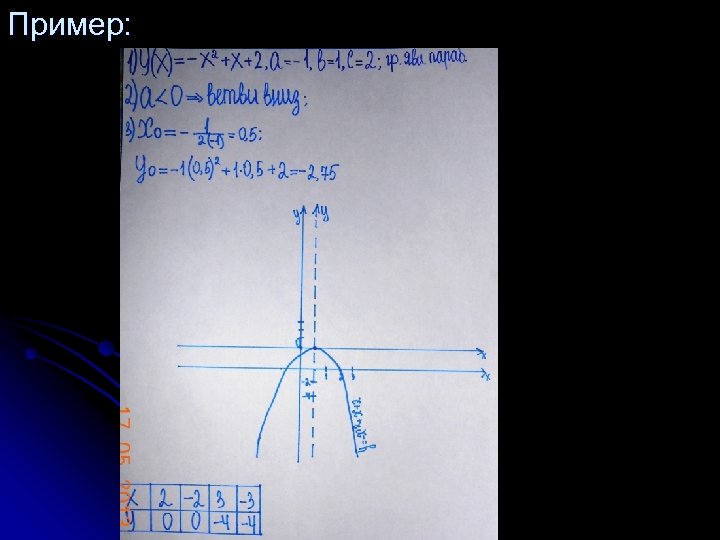 Пример:
1) y(x)=-x²+x+2, a=-1, b=1, c=2; гр. явл. параб.
2) a<0 ⇒ ветви вниз;
3) x₀=-1/2(-1)=0,5;
y₀=-1(0,5)²+1·0,5+2=-2,75
y y
x
x
y=-x²+x+2
x 2 -2 3 -3
y 0 0 -4 -4